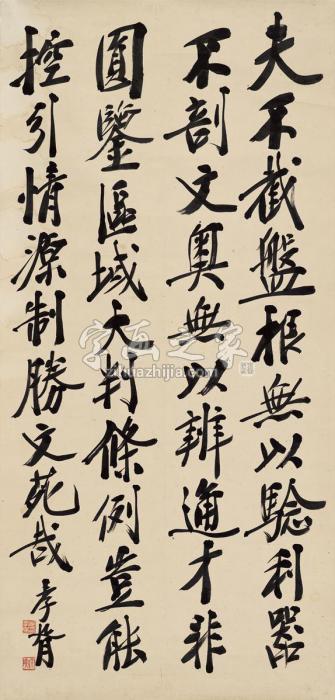 夫不截盤根無以驗利器
不剖文奧無以辨通才
圓鑒區域大判條例豈能
控引情源制勝文苑哉 孝胥
字画之家
zihuazhijia.com